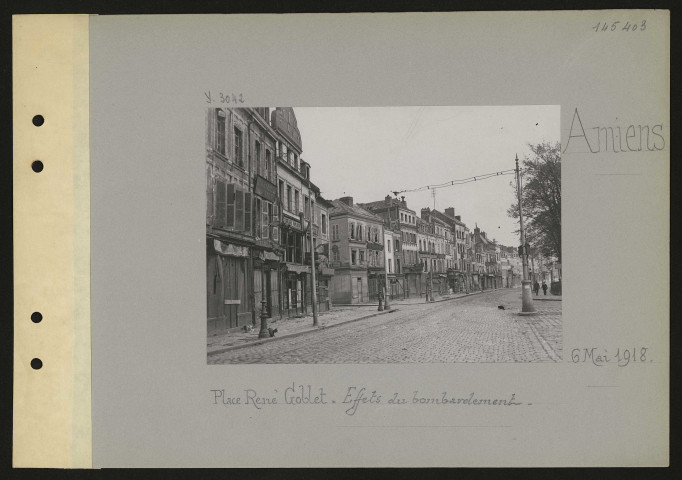 145 403
X. 3042
Amiens
6 Mai 1918.
Place René Goblet. Effets du bombardement.